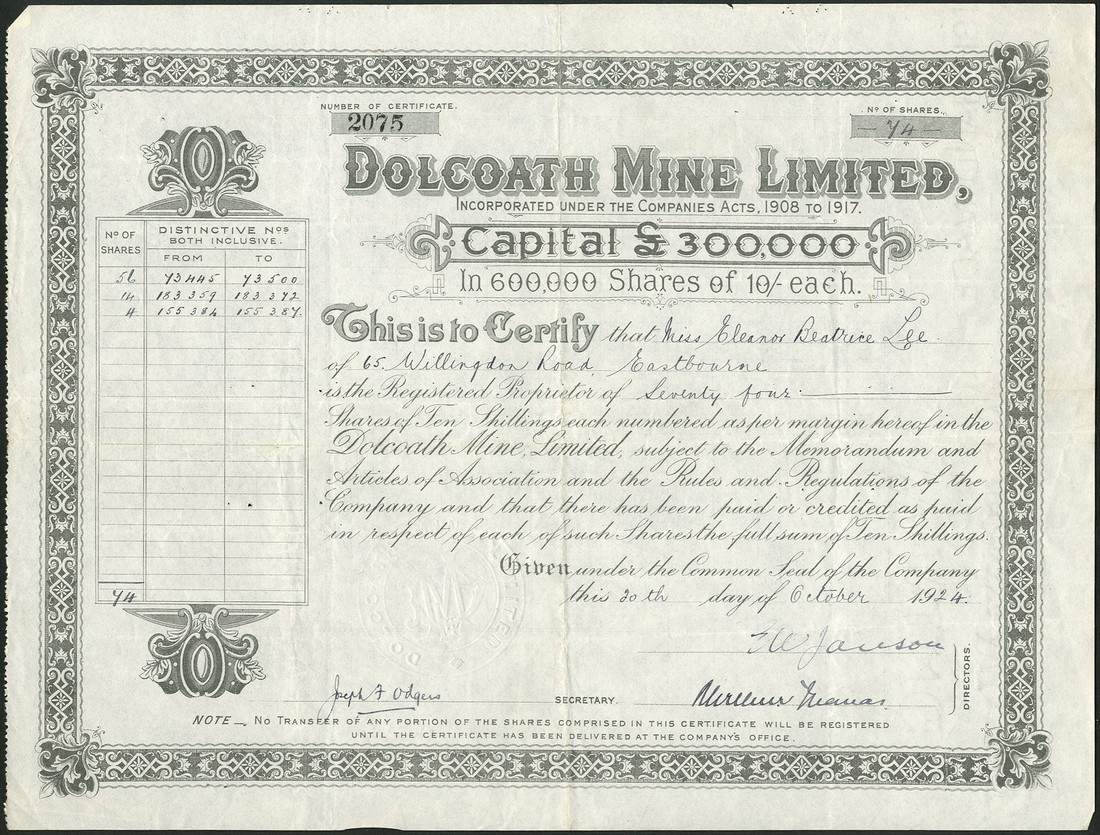 NUMBER OF CERTIFICATE.
2075
Nº OF SHARES.
— 74 —
DOLCOATH MINE LIMITED,
INCORPORATED UNDER THE COMPANIES ACTS, 1908 TO 1917.
Capital £300,000
In 600,000 Shares of 10/- each.
Nº OF SHARES
DISTINCTIVE Nos BOTH INCLUSIVE.
FROM TO
56 73445 73500
14 183359 183372
4 155384 155387
74
This is to Certify that Miss Eleanor Beatrice Lee
of 65. Willingdon Road, Eastbourne
is the Registered Proprietor of Seventy four
Shares of Ten Shillings each numbered as per margin hereof in the
Dolcoath Mine, Limited, subject to the Memorandum and
Articles of Association and the Rules and Regulations of the
Company and that there has been paid or credited as paid
in respect of each of such Shares the full sum of Ten Shillings.
Given under the Common Seal of the Company
this 20th day of October 1924.
Janson
DIRECTORS.
Joseph F Odgers
SECRETARY.
NOTE _ NO TRANSFER OF ANY PORTION OF THE SHARES COMPRISED IN THIS CERTIFICATE WILL BE REGISTERED
UNTIL THE CERTIFICATE HAS BEEN DELIVERED AT THE COMPANY'S OFFICE.